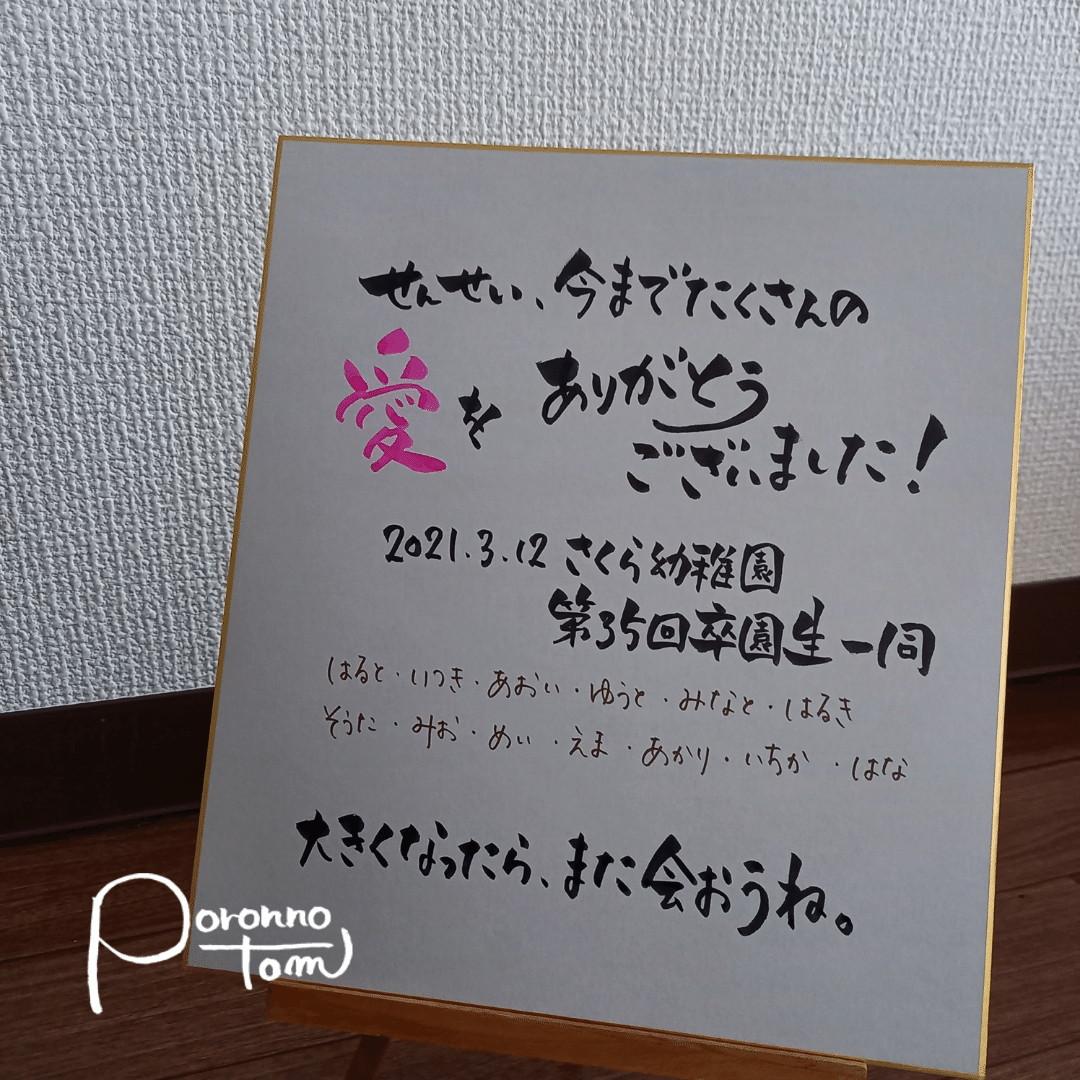 せんせい、今までたくさんの
愛を ありがとう
ございました!
2021.3.12 さくら幼稚園
第35回卒園生一同
はると・いつき・あおい・ゆうと・みなと・はるき
そうた・みお・めい・えま・あかり・いちか・はな
大きくなったら、また会おうね。
Poronno
tom